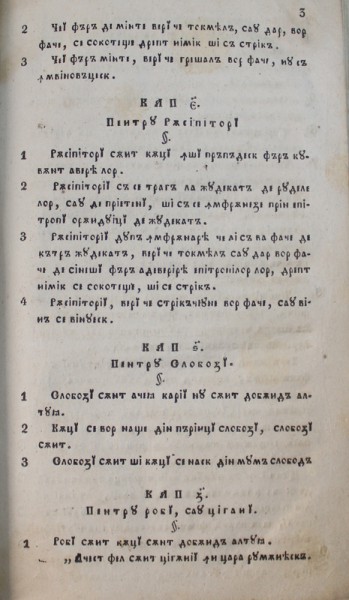 3
2 Чеї фъръ де мінте верї че токмѣлъ, саȣ дар, вор
фаче, се сокотеще дрепт німік ші с стрікъ.
3 Чеї фъръ мінте, верї че грешалъ вор фаче, нȣ се
ꙟвіновъцеск.
КАП є҃.
Пентрȣ Рѫсіпіторї
§.
1 Рѫсіпіторї сѫнт кѫцї яшї пръпъдеск фъръ кȣ-
вѫнт аверѣ лор.
2 Рѫсіпіторїї с се траг ла жȣдекатъ де рȣделе
лор, саȣ де прїетенї, ші с се ꙟмфрѫнезе прін епі-
тропї орѫндȣіцї де жȣдекатъ.
3 Рѫсіпіторїї дȣпъ ꙟмфрѫнаре че лі с ва фаче де
кътръ жȣдекатъ, верї че токмѣлъ саȣ дар вор фа-
че де сінешї фъръ адеверірѣ епітропілор лор, дрепт
німік се сокотеще, ші се стрікъ.
4 Рѫсіпіторїї, верї че стрікъчȣне вор фаче, саȣ ві-
нъ се вінȣеск.
КАП ѕ҃.
Пентрȣ Слобозї.
§.
1 Слобозї сѫнт ачеѩ карїї нȣ сѫнт добѫндъ ал-
тȣѩ.
2 Кѫцї се вор наще дін пърінцї слобозї, слобозї
сѫнт.
3 Слобозї сѫнт ші кѫцї се наск дін мȣмъ слободъ
КАП з҃.
Пентрȣ робї, саȣ ціганї.
§.
1 Робї сѫнт кѫцї сѫнт добѫндъ алтȣѩ.
„Ачест фел сѫнт цігѫнїї ꙟн цара рȣмѫнѣскъ.